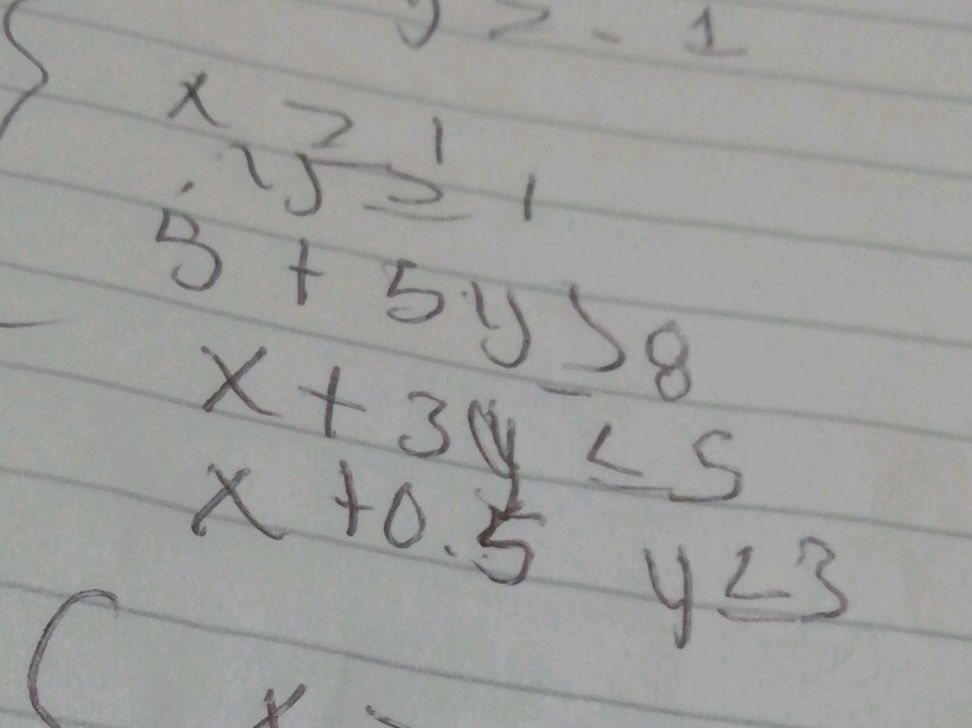 y > - 1
x ≥ 1
y ≥ 1
5 + 5y ≥ 8
x + 3y ≤ 5
x + 0.5 y ≤ 3
x